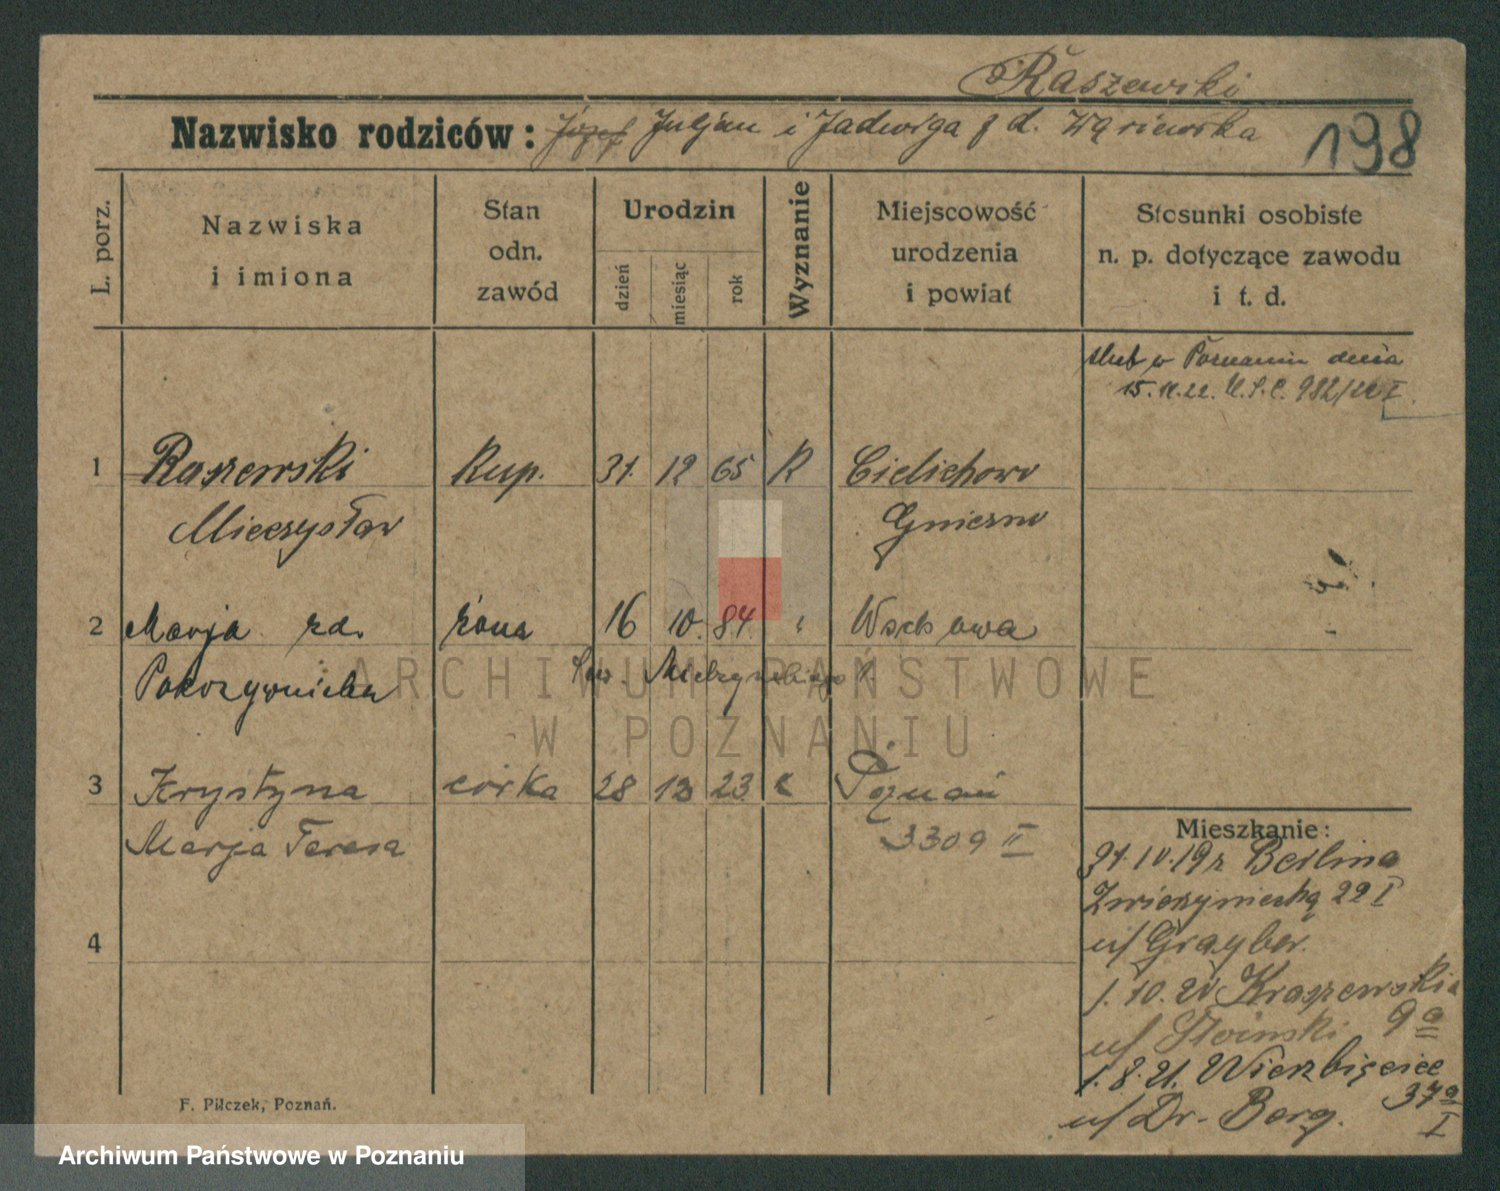 Raszewski
Nazwisko rodziców: Józef Juljan i Jadwiga z d.
198
L. porz.
Nazwiska
i imiona
Stan
odn.
zawód
Urodzin
dzień
miesiąc
rok
Wyznanie
Miejscowość
urodzenia
i powiat
Stosunki osobiste
n. p. dotyczące zawodu
i t. d.
ślub w Poznaniu dnia
15.11.22. U.S.C. 982/22 I
1 Raszewski Kup. 31. 12 65 R Cielichowo
Mieczysław Gniezno
2 Marja zd. żona 16 10. 84 Wschowa
3 Krystyna córka 28 12 23 Poznań
Marja Teresa 3309 II
4
Mieszkanie:
31.10.19r Berlina
Zwierzyniecka 22 I
u/ Grayber.
1.10.20 Kraszewskia
u/ Słoinski 9a
1.8.21. Wierzbięcice
37a
u/ Dr. Berg. I
F. Pilczek, Poznań.
ARCHIWUM PAŃSTWOWE
W POZNANIU
Archiwum Państwowe w Poznaniu